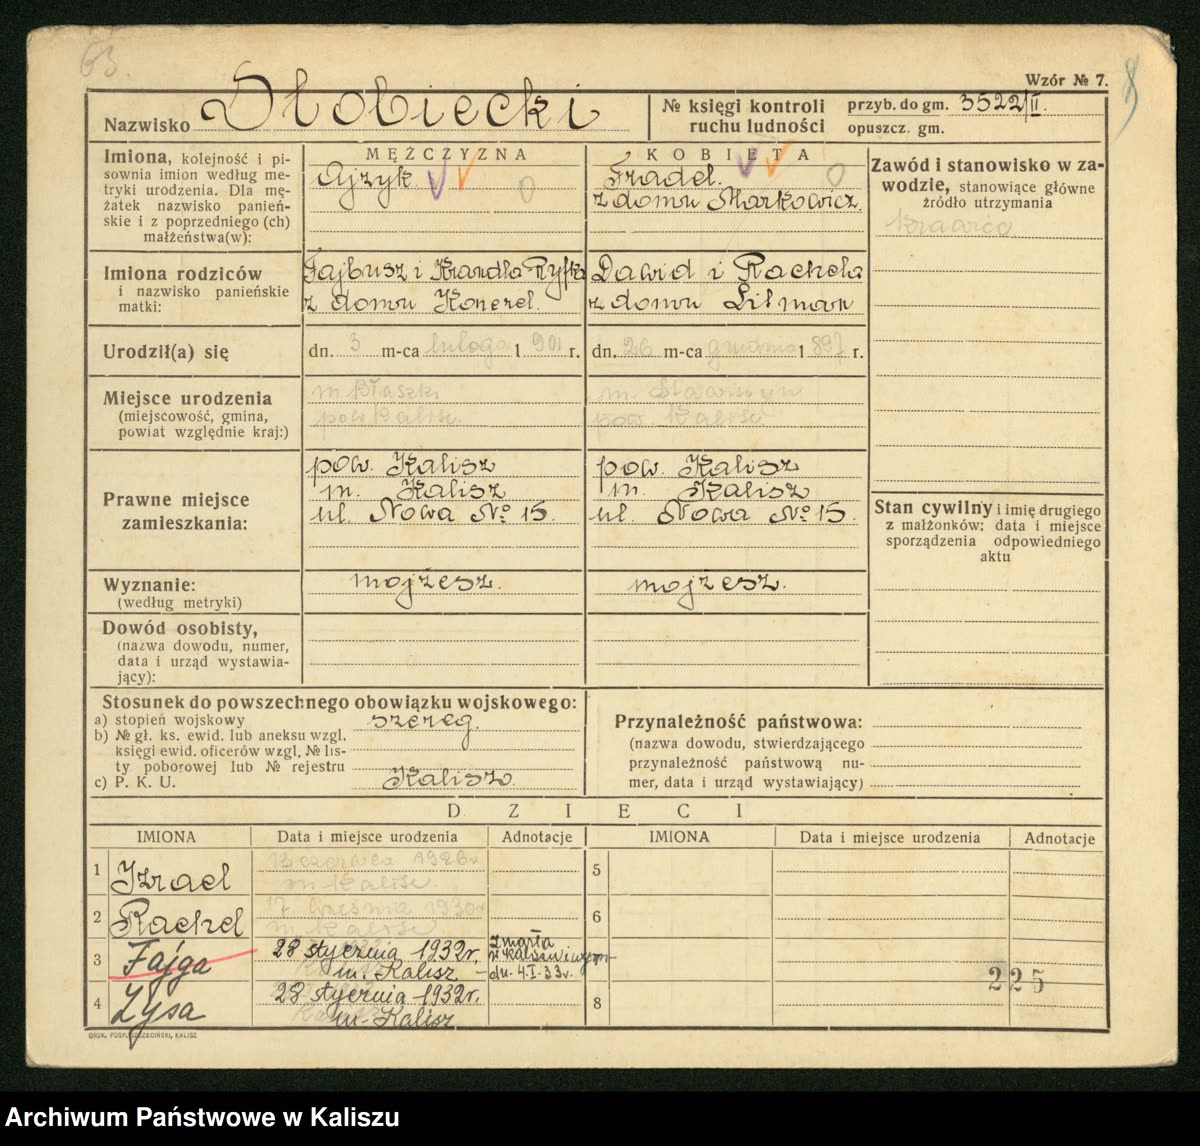 63.
8
Wzór № 7.
Nazwisko Słobiecki
№ księgi kontroli ruchu ludności
przyb. do gm. 3522/II.
opuszcz. gm.
Imiona, kolejność i pi-
sownia imion według me-
tryki urodzenia. Dla mę-
żatek nazwisko panień-
skie i z poprzedniego (ch)
małżeństwa(w):
MĘŻCZYZNA
Ajzyk.
KOBIETA
Fradel.
z domu Markowicz.
Zawód i stanowisko w za-
wodzie, stanowiące główne
źródło utrzymania
krawiec
Imiona rodziców
i nazwisko panieńskie
matki:
Fajbusz i Krandla-Ryfka
z domu Konerel.
Dawid i Rachela
z domu Litman
Urodził(a) się
dn. 3 m-ca lutego 1901 r.
dn. 26 m-ca grudnia 1897 r.
Miejsce urodzenia
(miejscowość, gmina,
powiat względnie kraj:)
m. Błaszki
pow. Kalisz.
m. Stawiszyn
pow. Kalisz.
Prawne miejsce
zamieszkania:
pow. Kalisz
m. Kalisz
ul. Nowa № 15.
pow. Kalisz
m. Kalisz
ul. Nowa № 15.
Stan cywilny i imię drugiego
z małżonków; data i miejsce
sporządzenia odpowiedniego
aktu
Wyznanie:
(według metryki)
mojżesz.
mojżesz.
Dowód osobisty,
(nazwa dowodu, numer,
data i urząd wystawia-
jący):
Stosunek do powszechnego obowiązku wojskowego:
a) stopień wojskowy szereg.
b) № gł. ks. ewid. lub aneksu wzgl.
księgi ewid. oficerów wzgl. № lis-
ty poborowej lub № rejestru
c) P. K. U. Kalisz.
Przynależność państwowa:
(nazwa dowodu, stwierdzającego
przynależność państwową nu-
mer, data i urząd wystawiający)
DZIECI
IMIONA Data i miejsce urodzenia Adnotacje IMIONA Data i miejsce urodzenia Adnotacje
1 Izrael 13 czerwca 1926 r. m. Kalisz.
2 Rachel 17 września 1930 r. m. Kalisz
3 Fajga 28 stycznia 1932 r. m. Kalisz zmarła w Kaliszu dn. 4.I.33 r.
4 Zysa 28 stycznia 1932 r. m. Kalisz
5
6
7
8
225
DRUK. POSP. SZCZECIŃSKI, KALISZ
Archiwum Państwowe w Kaliszu